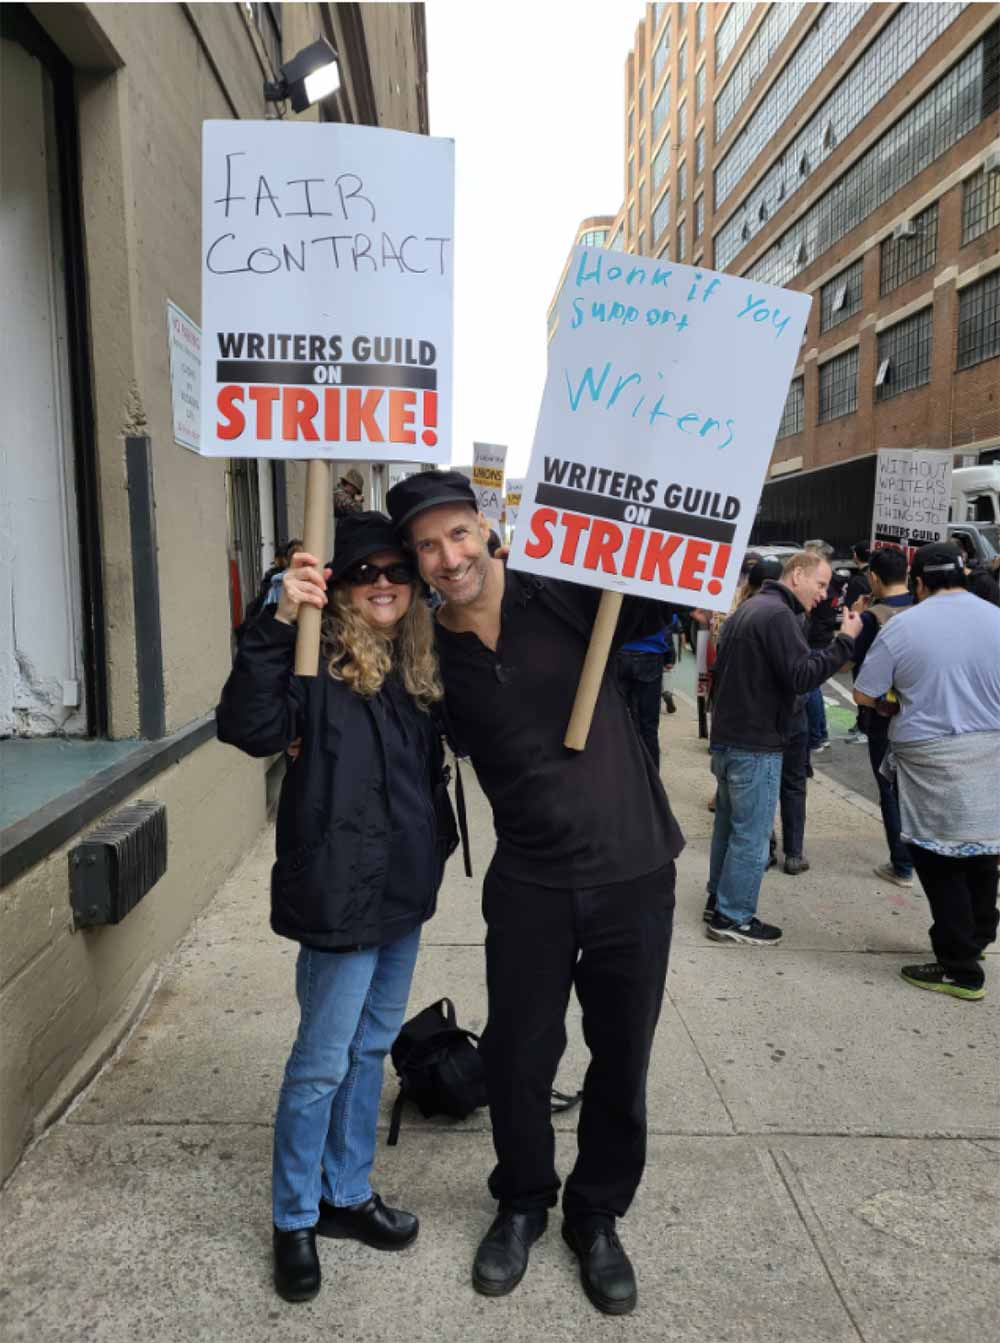 FAIR
CONTRACT
WRITERS GUILD
ON
STRIKE!
Honk if you
support
Writers
WRITERS GUILD
ON
STRIKE!
UNIONS
WGA
WITHOUT
WRITERS
THE WHOLE
THING STO
WRITERS GUILD
NO PARKING